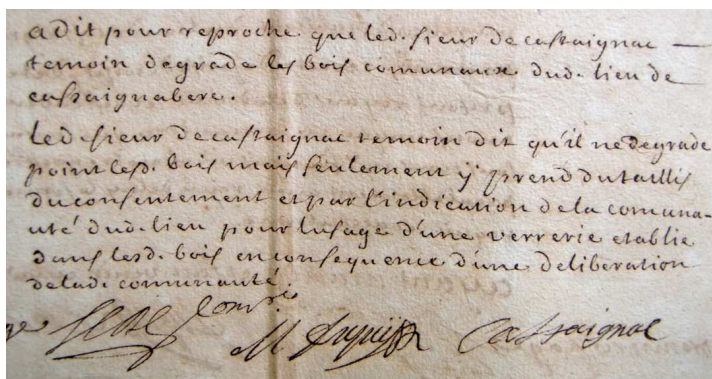 a dit pour reproche que led. sieur de castaignac —
temoin degrade les bois communaux dud. lieu de
cassaignabere.
led. sieur de castaignac temoin dit qu'il ne degrade
point lesd. bois mais seulement y prend du taillis
du consentement et par l'indication de la comuna-
uté dud. lieu pour lusage d'une verrerie etablie
dans lesd. bois en consequence d'une deliberation
de lad. communauté.
Cassaignac